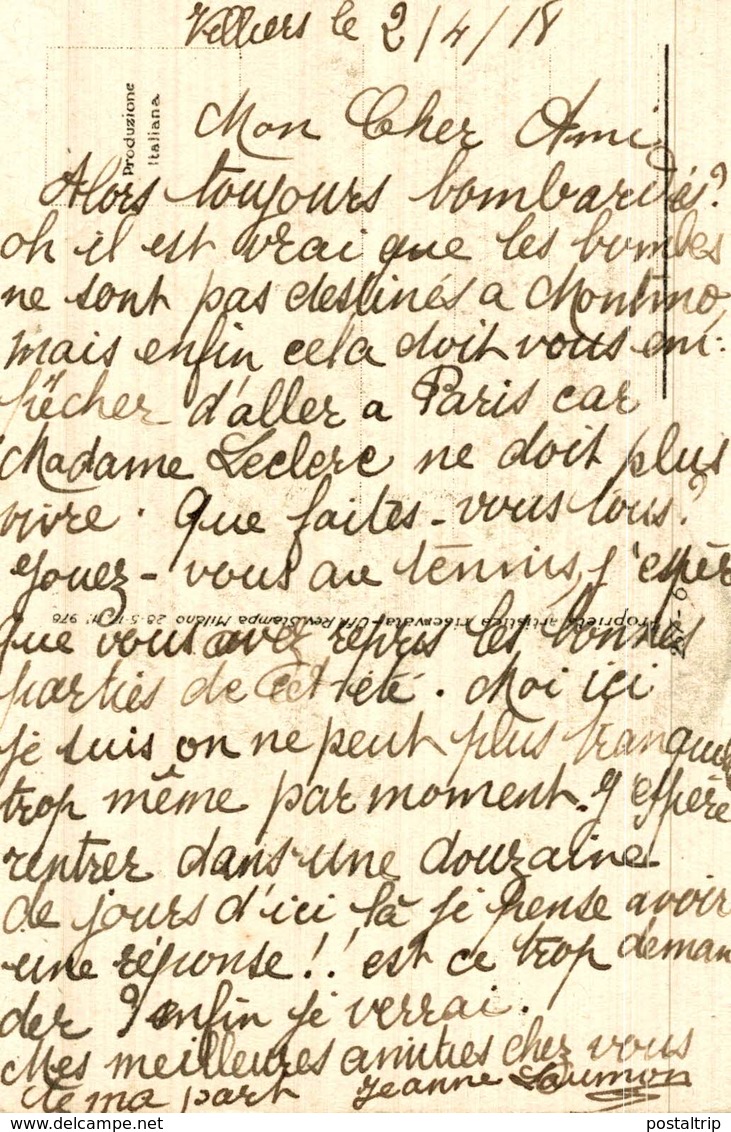 Villiers le 2/4/18
Produzione
Italiana
Mon Cher Ami
Alors toujours bombardés?
oh il est vrai que les bombes
ne sont pas destinés a Montmo
mais enfin cela doit vous em-
pêcher d'aller a Paris car
Madame Leclerc ne doit plus
vivre. Que faites-vous tous?
Jouez-vous au tennis, j'espère
Proprietà artistica riservata - Uff. Rev. Stampa Milano 28-5-17 N. 978
que vous avez repris les bonnes
parties de cet été. Moi ici
je suis on ne peut plus tranquille
trop même par moment. J'espère
rentrer dans une douzaine
de jours d'ici là je pense avoir
une réponse!! est ce trop deman
der? enfin je verrai.
Mes meilleures amitiés chez vous
de ma part Jeanne Laumon
postaltrip.delcampe.net
postaltrip